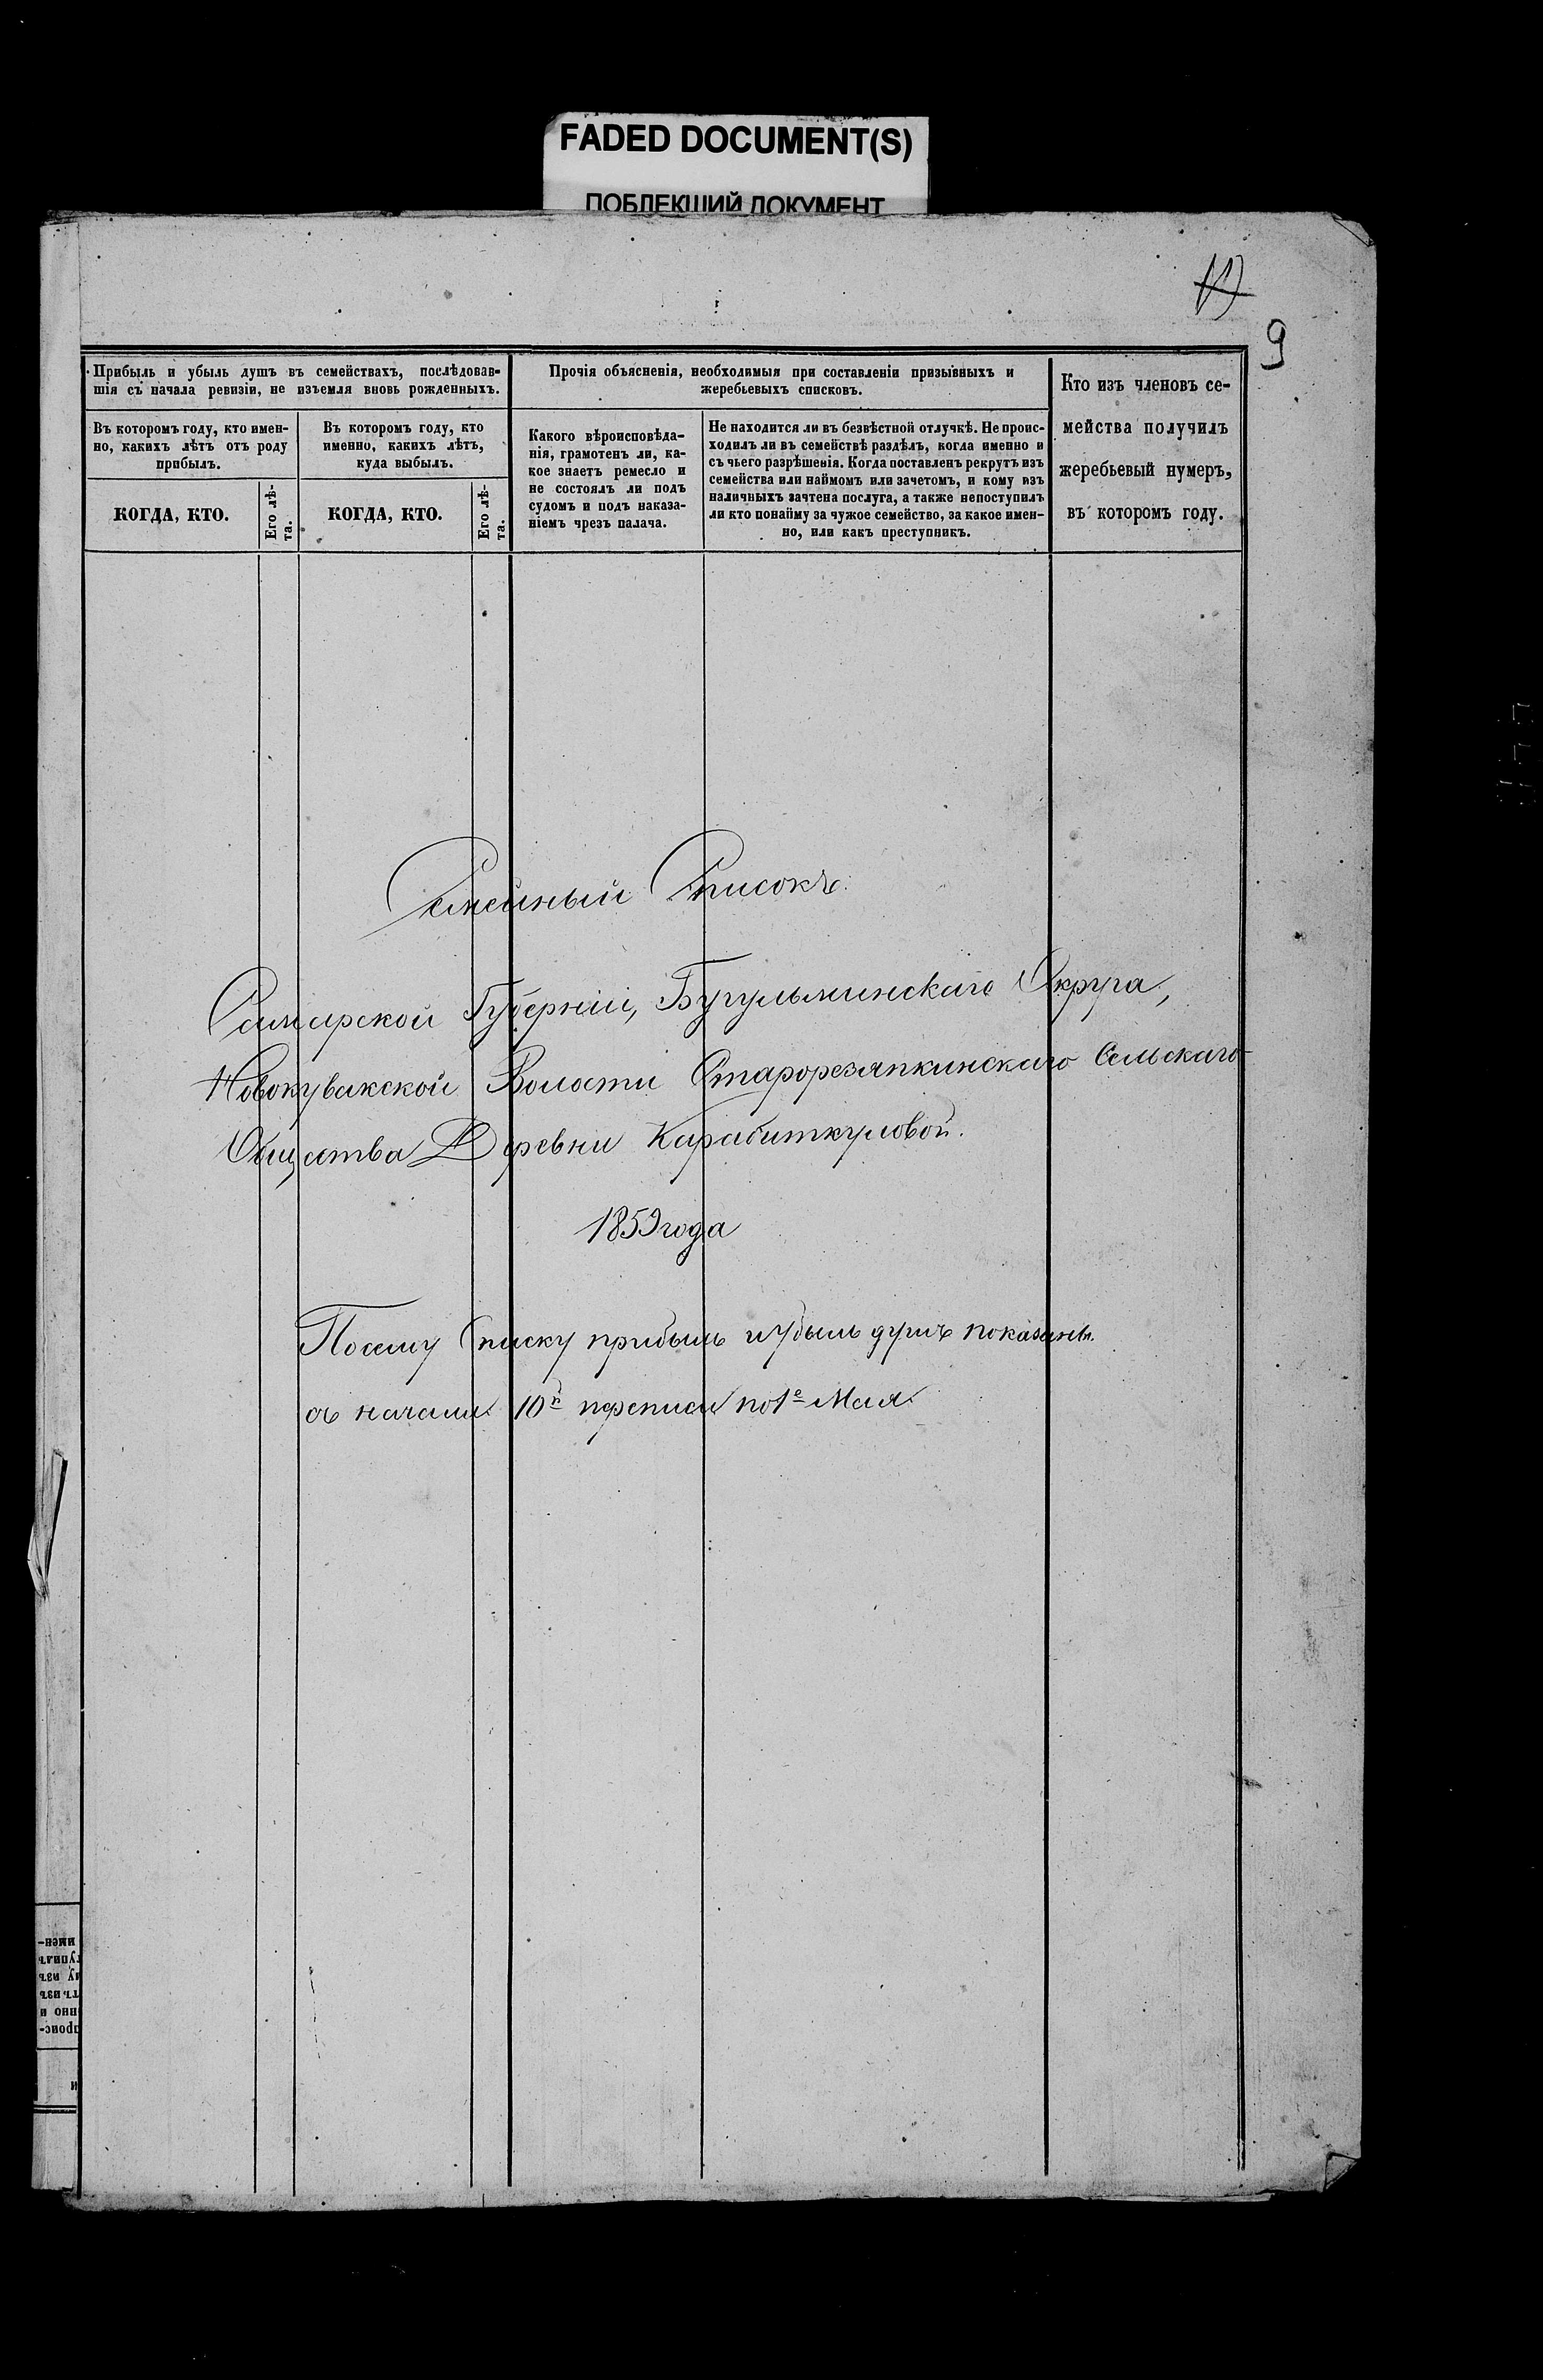 FADED DOCUMENT(S)
ПОБЛЕКШИЙ ДОКУМЕНТ
9
Прибыль и убыль душъ въ семействахъ, послѣдовав-
шія съ начала ревизіи, не изъемля вновь рожденныхъ.
Въ которомъ году, кто имен-
но, какихъ лѣтъ отъ роду
прибылъ.
КОГДА, КТО.
Его лѣ-
та.
Въ которомъ году, кто
именно, какихъ лѣтъ,
куда выбылъ.
КОГДА, КТО.
Его лѣ-
та.
Прочія объясненія, необходимыя при составленіи призывныхъ и
жеребьевыхъ списковъ.
Какого вѣроисповѣда-
нія, грамотенъ ли, ка-
кое знаетъ ремесло и
не состоялъ ли подъ
судомъ и подъ наказа-
ніемъ чрезъ палача.
Не находится ли въ безвѣстной отлучкѣ. Не проис-
ходилъ ли въ семействѣ раздѣлъ, когда именно и
съ чьего разрѣшенія. Когда поставленъ рекрутъ изъ
семейства или наймомъ или зачетомъ, и кому изъ
наличныхъ зачтена послуга, а также непоступилъ
ли кто понайму за чужое семейство, за какое имен-
но, или какъ преступникъ.
Кто изъ членовъ се-
мейства получилъ
жеребьевый нумеръ,
въ которомъ году.
Семейный Списокъ
Самарской Губерніи, Бугульминскаго Округа,
Новокувакской Волости Старорезяпкинскаго Сельскаго
Общества Деревни Карабиткуловой.
1859 года
Посему Списку прибыль и убыль душъ показаны
съ начала 10й переписи по 1е Мая
имен-
тупилъ
му изъ
тъ изъ
нно и
проис-
и